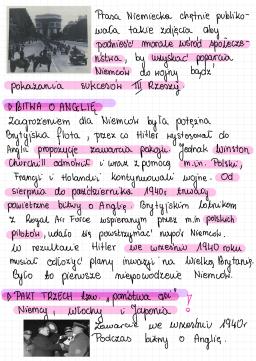 Prasa Niemiecka chętnie publiko-
wała takie zdjęcia aby
podnieść morale wśród społecze-
ństwa, by uzyskać poparcia
Niemców do wojny bądź
pokazania sukcesów III Rzeszy
BITWA O ANGLIĘ
Zagrożeniem dla Niemców była potężna
Brytyjska flota, przez co Hitler wystosował do
Anglii propozycję zawarcia pokoju. Jednak Winston
Churchill odmówił i wraz z pomocą m.in. Polski,
Francji i Holandii kontynuowali wojnę. Od
sierpnia do października 1940r. trwały
powietrzne bitwy o Anglię. Brytyjskim lotnikom
z Royal Air Force wspieranym przez m.in polskich
pilotów, udało się powstrzymać napór Niemców.
W rezultacie Hitler we wrześniu 1940 roku
musiał odłożyć plany inwazji na Wielką Brytanię.
Było to pierwsze niepowodzenie Niemców.
PAKT TRZECH tzw. "państwa osi"
Niemcy, Włochy i Japonia !
Zawarcie we wrześniu 1940r
Podczas bitwy o Anglię.